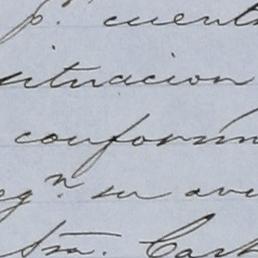 pr. cuent
situacion
conform
segn. su avi
stra. Cart